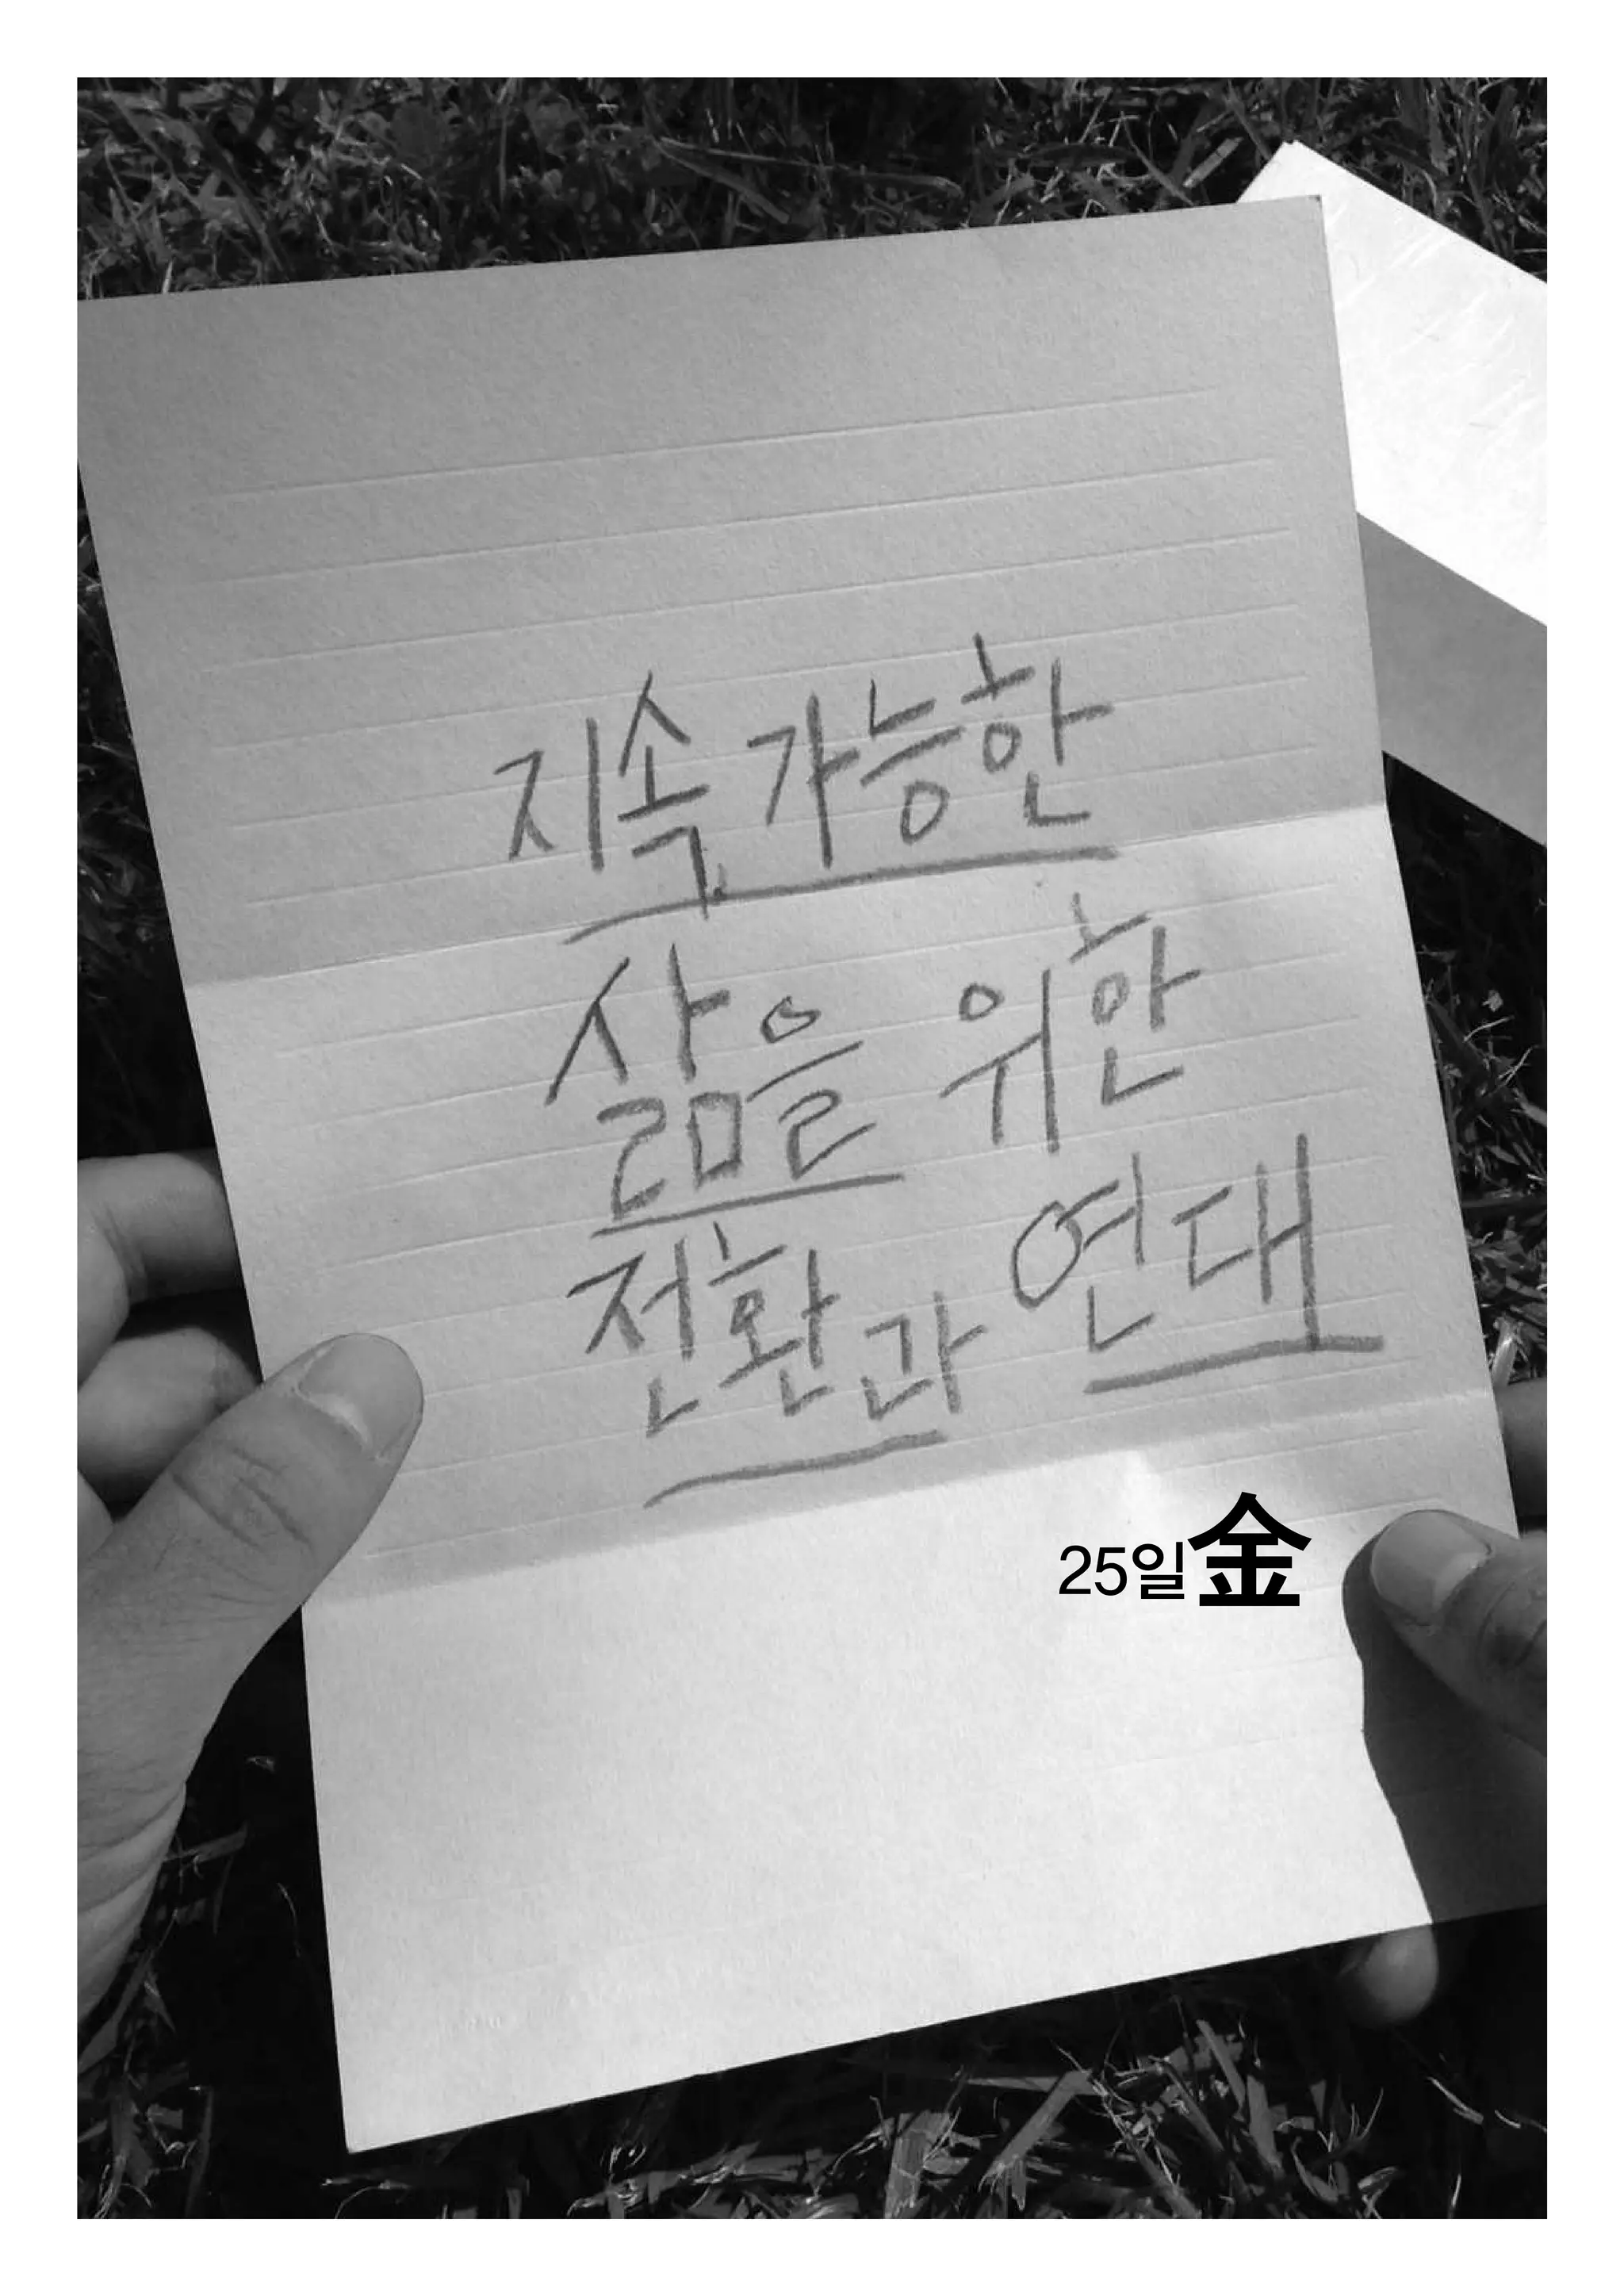 지속 가능한
삶을 위한
전환과 연대
25일金